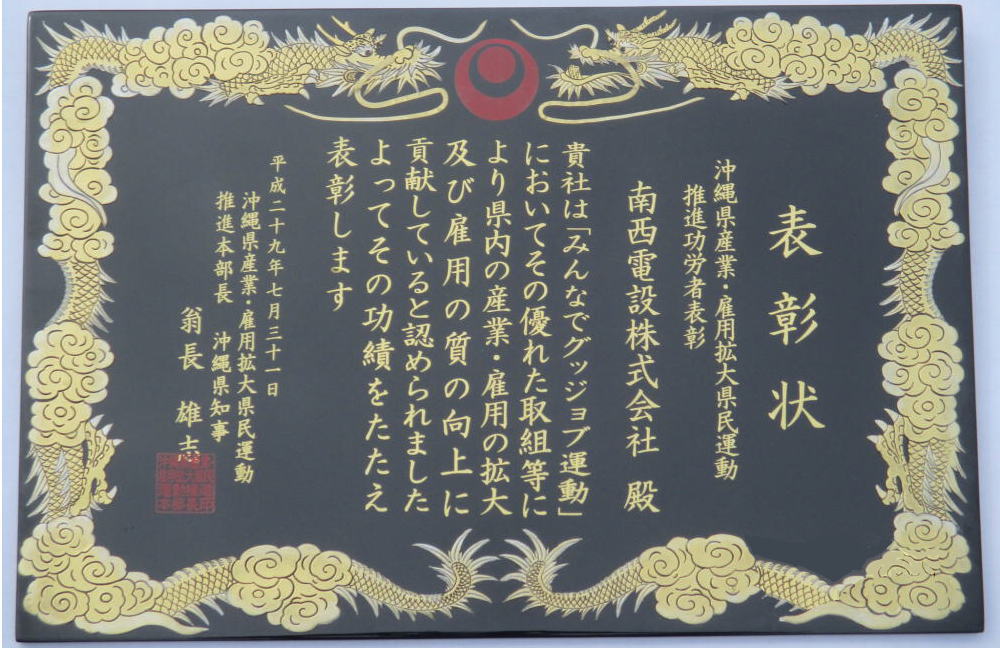 表彰状
沖縄県産業・雇用拡大県民運動
推進功労者表彰
南西電設株式会社 殿
貴社は「みんなでグッジョブ運動」
においてその優れた取組等に
より県内の産業・雇用の拡大
及び雇用の質の向上に
貢献していると認められました
よってその功績をたたえ
表彰します
平成二十九年七月三十一日
沖縄県産業・雇用拡大県民運動
推進本部長 沖縄県知事
翁長 雄志